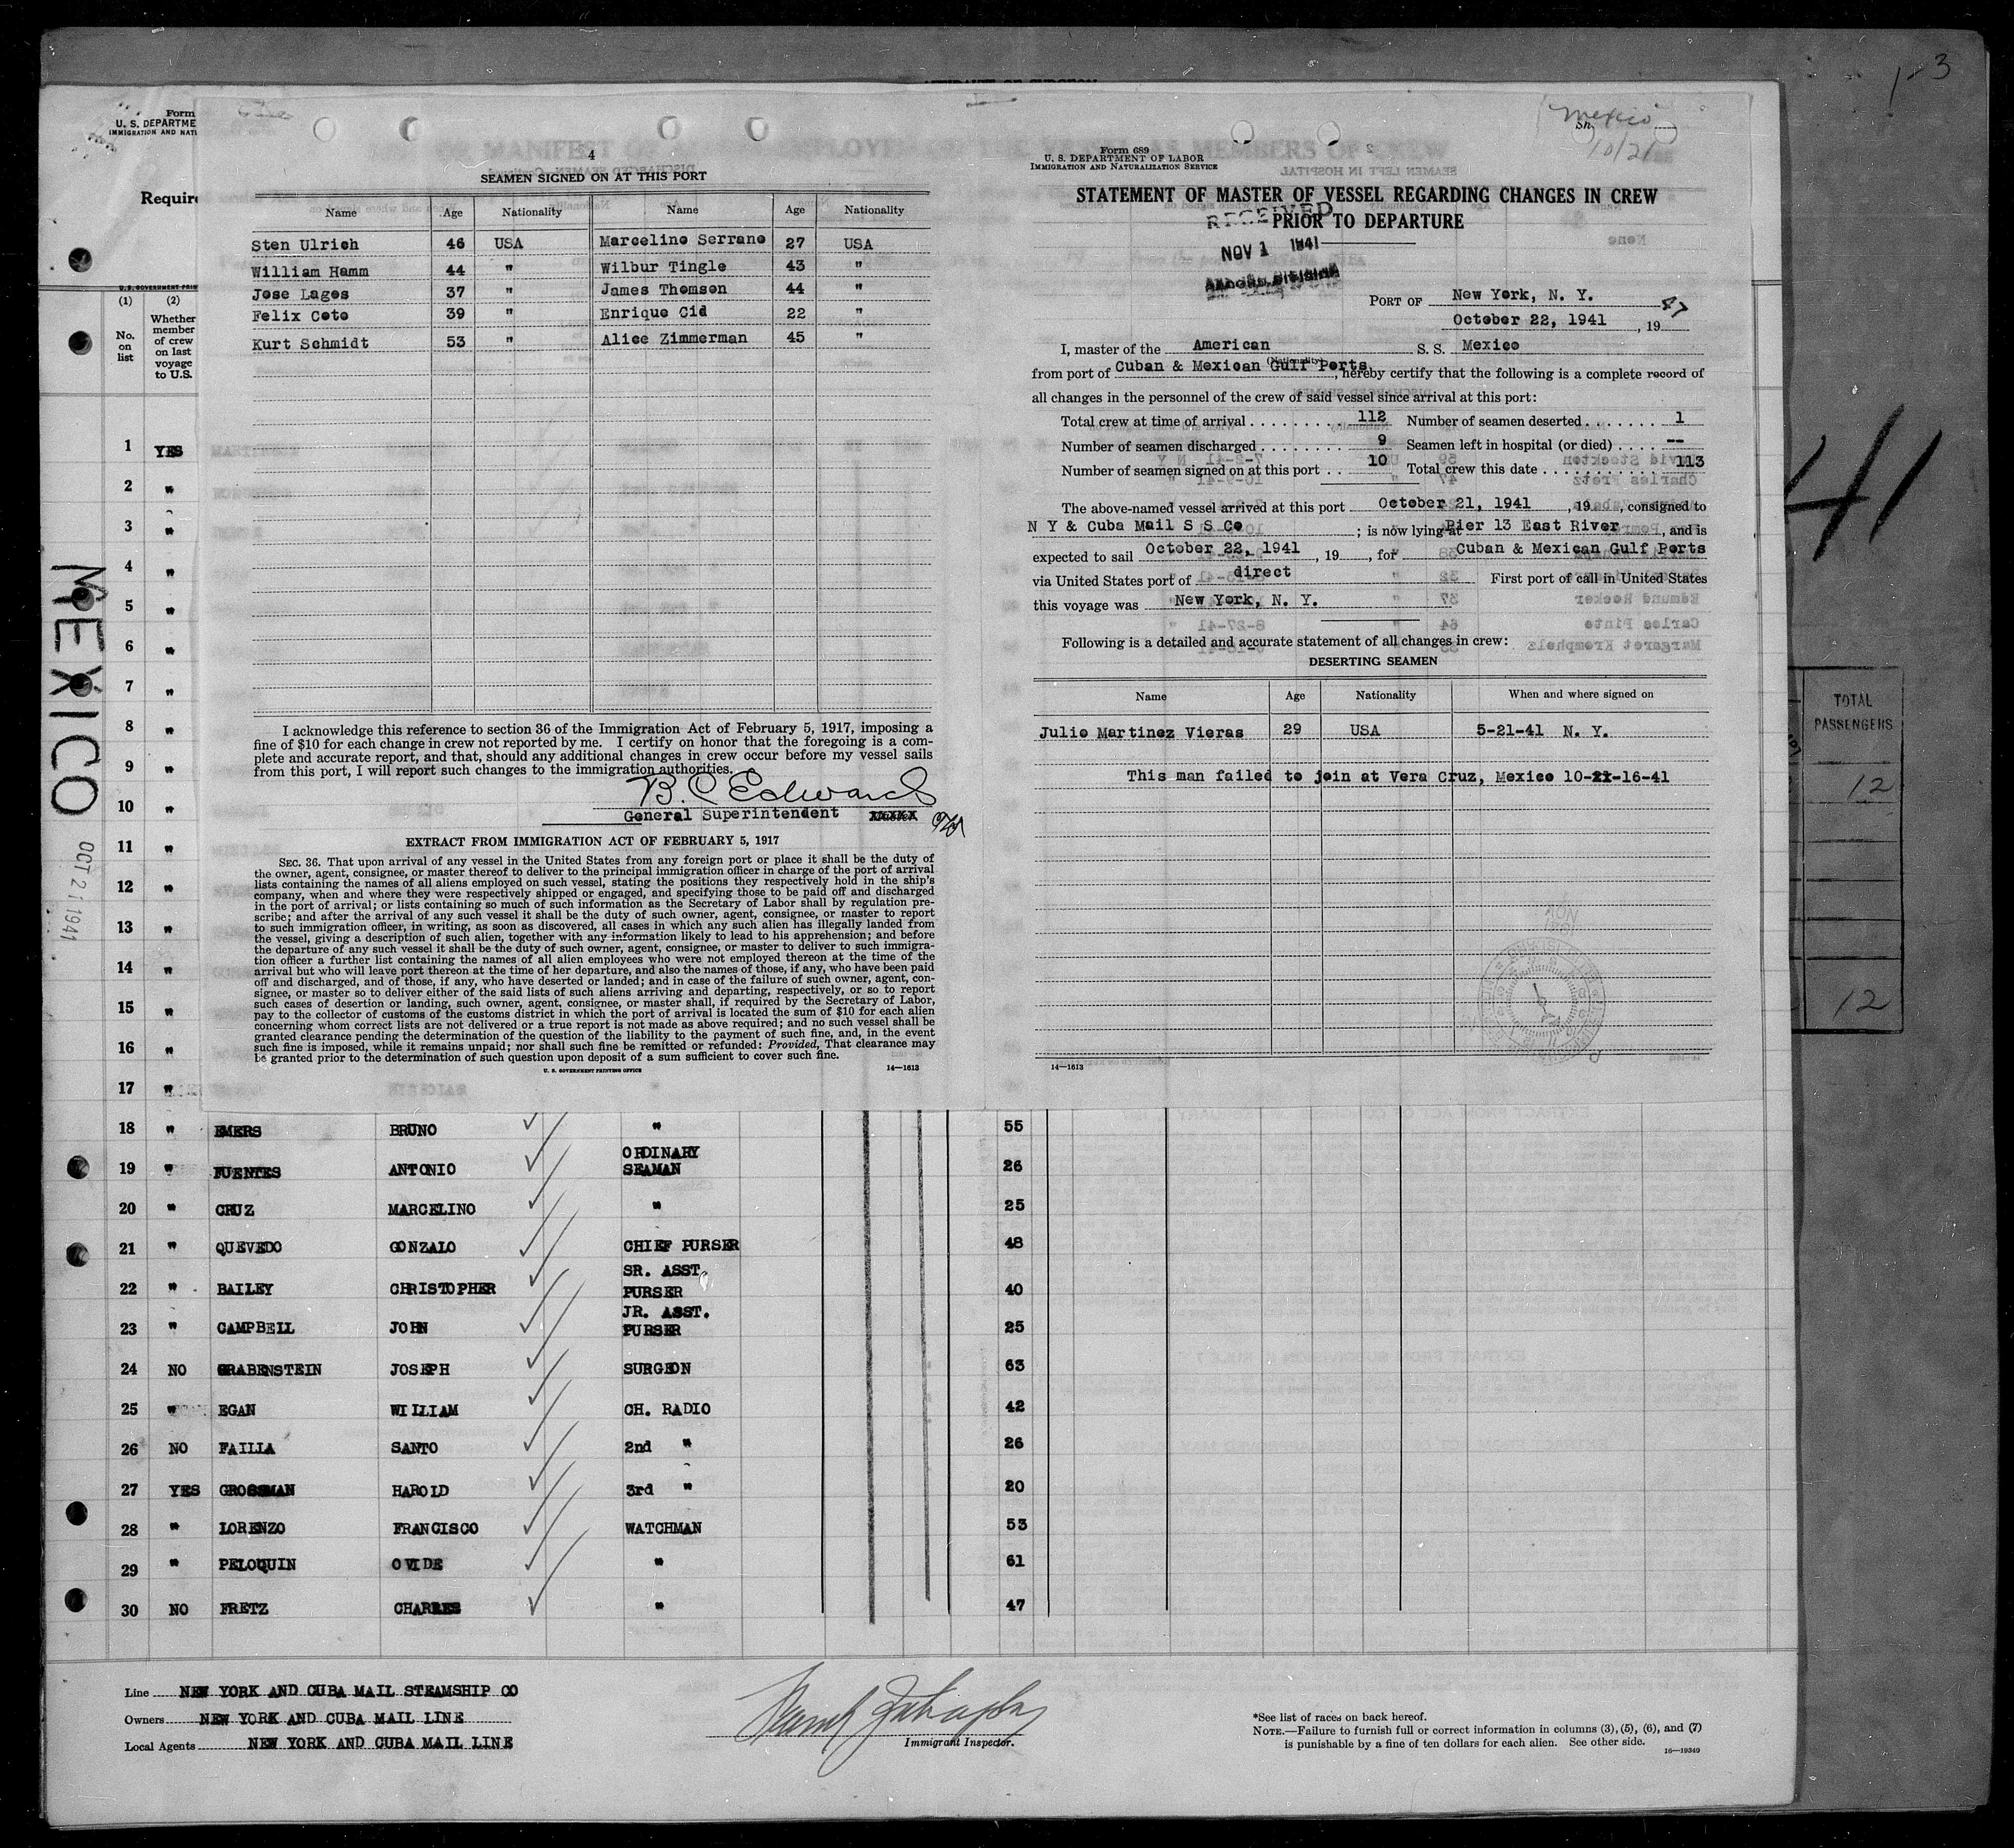 1-3
Form
U. S. DEPARTME
IMMIGRATION AND NATI
Require
U. S. GOVERNMENT PRIN
(1) (2)
No. on list
Whether member of crew on last voyage to U.S.
MEXICO
OCT 21 1941
41
TOTAL PASSENGERS
12
12
4
SEAMEN SIGNED ON AT THIS PORT
Name Age Nationality Name Age Nationality
Sten Ulrich 46 USA Marcelino Serrano 27 USA
William Hamm 44 " Wilbur Tingle 43 "
Jose Lages 37 " James Thomson 44 "
Felix Coto 39 " Enrique Cid 22 "
Kurt Schmidt 53 " Alice Zimmerman 45 "
I acknowledge this reference to section 36 of the Immigration Act of February 5, 1917, imposing a
fine of $10 for each change in crew not reported by me. I certify on honor that the foregoing is a com-
plete and accurate report, and that, should any additional changes in crew occur before my vessel sails
from this port, I will report such changes to the immigration authorities.
B. C Edwards
General Superintendent
EXTRACT FROM IMMIGRATION ACT OF FEBRUARY 5, 1917
SEC. 36. That upon arrival of any vessel in the United States from any foreign port or place it shall be the duty of
the owner, agent, consignee, or master thereof to deliver to the principal immigration officer in charge of the port of arrival
lists containing the names of all aliens employed on such vessel, stating the positions they respectively hold in the ship's
company, when and where they were respectively shipped or engaged, and specifying those to be paid off and discharged
in the port of arrival; or lists containing so much of such information as the Secretary of Labor shall by regulation pre-
scribe; and after the arrival of any such vessel it shall be the duty of such owner, agent, consignee, or master to report
to such immigration officer, in writing, as soon as discovered, all cases in which any such alien has illegally landed from
the vessel, giving a description of such alien, together with any information likely to lead to his apprehension; and before
the departure of any such vessel it shall be the duty of such owner, agent, consignee, or master to deliver to such immigra-
tion officer a further list containing the names of all alien employees who were not employed thereon at the time of the
arrival but who will leave port thereon at the time of her departure, and also the names of those, if any, who have been paid
off and discharged, and of those, if any, who have deserted or landed; and in case of the failure of such owner, agent, con-
signee, or master so to deliver either of the said lists of such aliens arriving and departing, respectively, or so to report
such cases of desertion or landing, such owner, agent, consignee, or master shall, if required by the Secretary of Labor,
pay to the collector of customs of the customs district in which the port of arrival is located the sum of $10 for each alien
concerning whom correct lists are not delivered or a true report is not made as above required; and no such vessel shall be
granted clearance pending the determination of the question of the liability to the payment of such fine, and, in the event
such fine is imposed, while it remains unpaid; nor shall such fine be remitted or refunded: Provided, That clearance may
be granted prior to the determination of such question upon deposit of a sum sufficient to cover such fine.
U. S. GOVERNMENT PRINTING OFFICE 14—1613
Mexico
10/21
Form 689
U. S. DEPARTMENT OF LABOR
IMMIGRATION AND NATURALIZATION SERVICE
STATEMENT OF MASTER OF VESSEL REGARDING CHANGES IN CREW
PRIOR TO DEPARTURE
RECEIVED
NOV 1 1941
PORT OF New York, N. Y.
October 22, 1941 , 19
I, master of the American S. S. Mexico
(Nationality)
from port of Cuban & Mexican Gulf Ports, hereby certify that the following is a complete record of
all changes in the personnel of the crew of said vessel since arrival at this port:
Total crew at time of arrival 112 Number of seamen deserted 1
Number of seamen discharged 9 Seamen left in hospital (or died) --
Number of seamen signed on at this port 10 Total crew this date 113
The above-named vessel arrived at this port October 21, 1941 , 19 , consigned to
N Y & Cuba Mail S S Co ; is now lying at Pier 13 East River , and is
expected to sail October 22, 1941 , 19 , for Cuban & Mexican Gulf Ports
via United States port of direct First port of call in United States
this voyage was New York, N. Y.
Following is a detailed and accurate statement of all changes in crew:
DESERTING SEAMEN
Name Age Nationality When and where signed on
Julio Martinez Vieras 29 USA 5-21-41 N. Y.
This man failed to join at Vera Cruz, Mexico 10-16-41
14—1613
1 YES
2 "
3 "
4 "
5 "
6 "
7 "
8 "
9 "
10 "
11 "
12 "
13 "
14 "
15 "
16 "
17 "
18 " EMERS BRUNO " 55
19 " FUENTES ANTONIO ORDINARY SEAMAN 26
20 " CRUZ MARCELINO " 25
21 " QUEVEDO GONZALO CHIEF PURSER 48
22 " BAILEY CHRISTOPHER SR. ASST. PURSER 40
23 " CAMPBELL JOHN JR. ASST. PURSER 25
24 NO GRABENSTEIN JOSEPH SURGEON 63
25 " EGAN WILLIAM CH. RADIO 42
26 NO FAILLA SANTO 2nd " 26
27 YES GROSSMAN HAROLD 3rd " 20
28 " LORENZO FRANCISCO WATCHMAN 53
29 " PELOQUIN OVIDE " 61
30 NO FRETZ CHARLES " 47
Line NEW YORK AND CUBA MAIL STEAMSHIP CO
Owners NEW YORK AND CUBA MAIL LINE
Local Agents NEW YORK AND CUBA MAIL LINE
Immigrant Inspector.
*See list of races on back hereof.
NOTE.—Failure to furnish full or correct information in columns (3), (5), (6), and (7)
is punishable by a fine of ten dollars for each alien. See other side.
16—19349